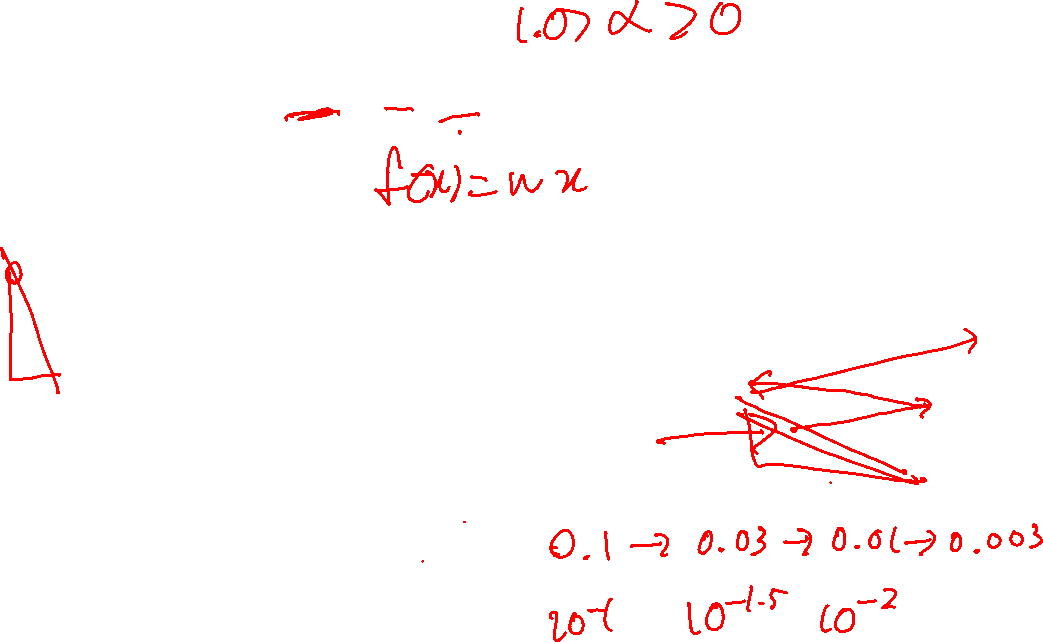 1.0 > α > 0
f(x) = wx
0.1 → 0.03 → 0.01 → 0.003
10⁻¹ 10⁻¹·⁵ 10⁻²